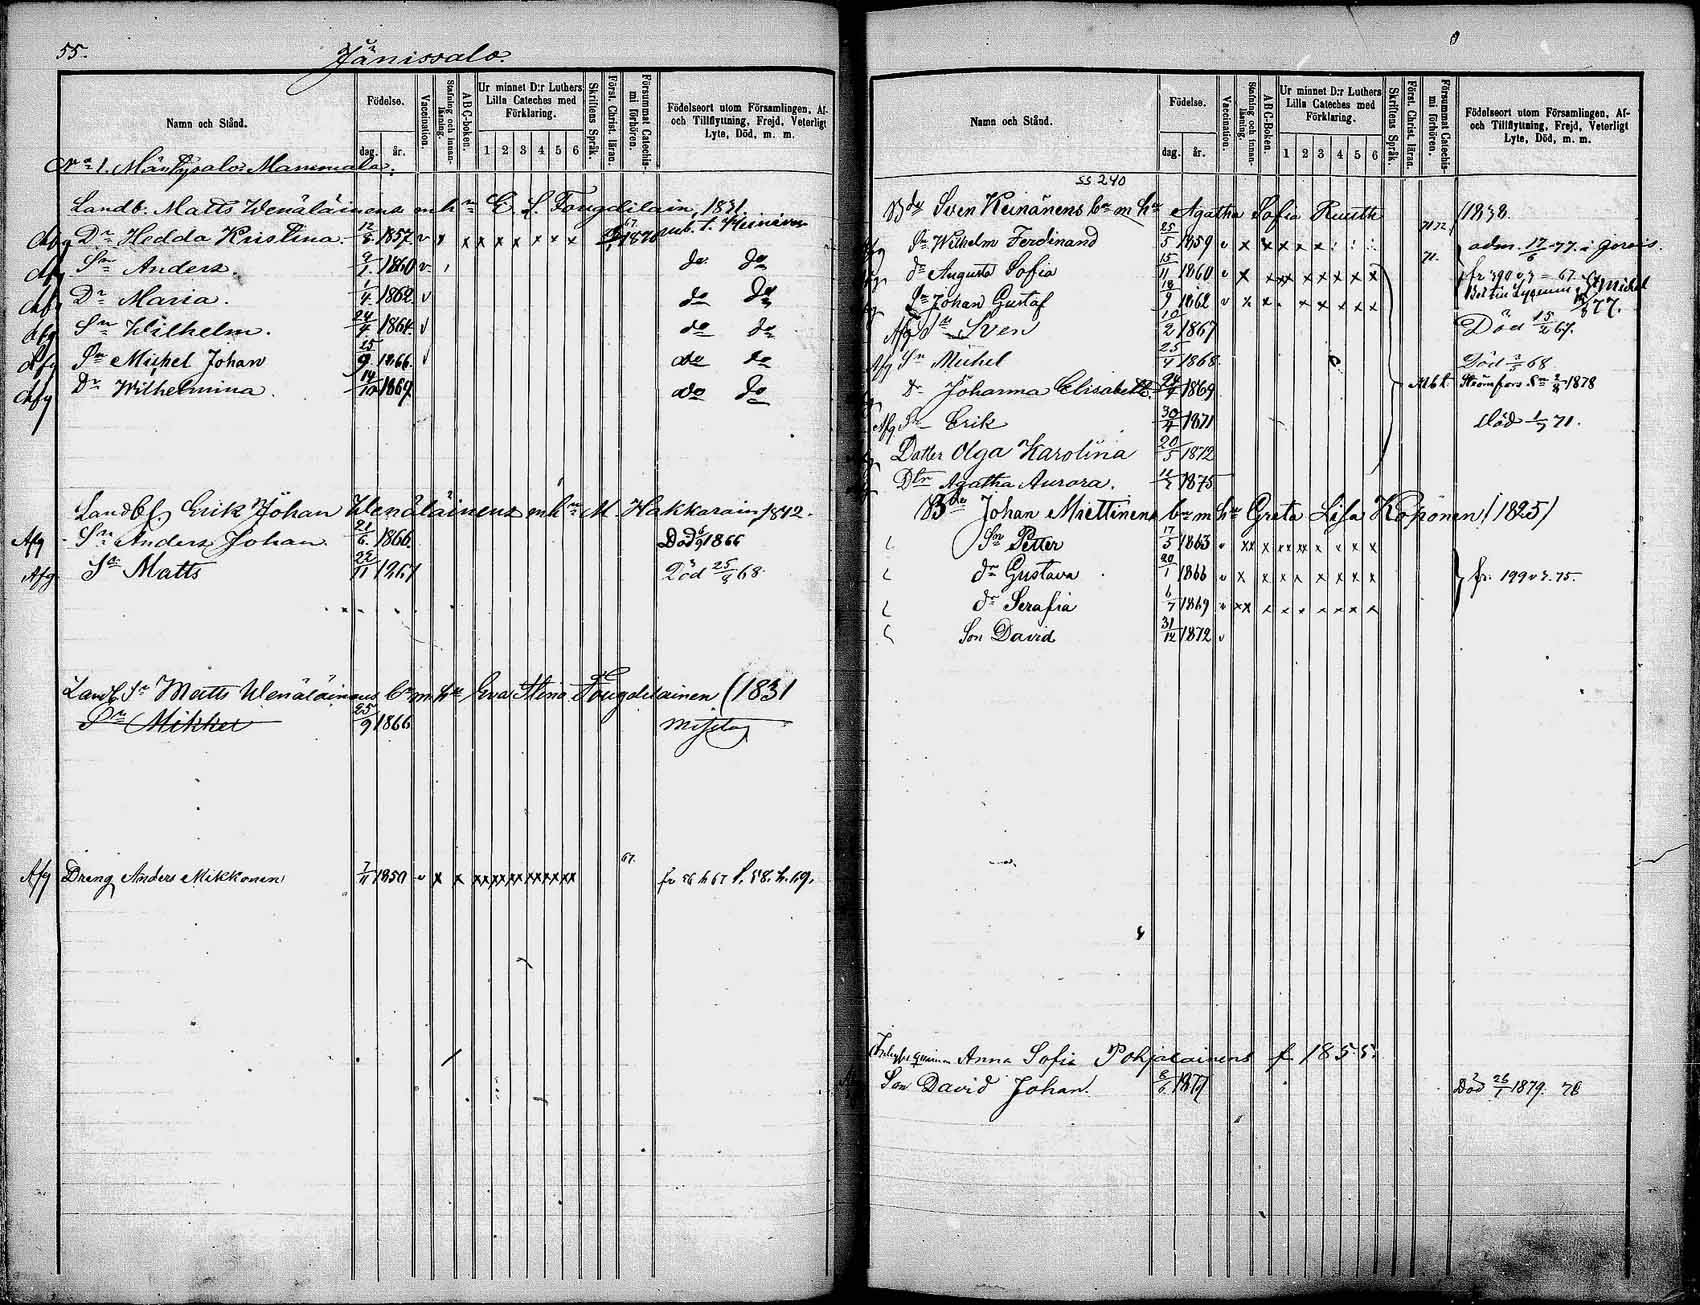 55.
Jänissalo.
Namn och Stånd.
Födelse.
dag. år.
Vaccination.
Stafning och innanläsning.
ABC-boken.
Ur minnet D:r Luthers Lilla Cateches med Förklaring.
1 2 3 4 5 6
Skriftens Språk.
Först. Christ. läran.
Försummat Catechismi förhören.
Födelseort utom Församlingen, Af- och Tillflyttning, Frejd, Veterligt Lyte, Död, m. m.
No 1. Mäntysalo: Mammala.
Landb. Matts Wenäläinens m hu E. L. Fougdilain, 1831.
Afg Dr Hedda Kristina. 12/6 1857. v x x x x x x x x 67 1870
Afg Sn Anders. 9/1 1860 v do do
Afg Dr Maria. 1/4 1862. v do do
Afg Sn Wilhelm. 24/4 1864. v do do
Afg Sn Michel Johan 25/9 1866. v do do
Afg Dr Wilhelmina. 14/10 1869. do do
Landbf. Erik Johan Wenäläinens m hu M. Hakkarain, 1842.
Afg Sn Anders Johan 21/6 1866. Död 6/9 1866
Afg Sn Matts 22/11 1867 Död 25/9 68.
Landb Sn Matts Wenäläinens bn m hu Eva Stina Fougdilainen (1831
Sn Mikkel 25/9 1866
67.
Afg Dreng Anders Mikkonen 7/11 1850 v x x xx xx xx xx xx xx fr 56 h 67 f. 58. h. 69.
Namn och Stånd.
Födelse.
dag. år.
Vaccination.
Stafning och innanläsning.
ABC-Boken.
Ur minnet D:r Luthers Lilla Cateches med Förklaring.
1 2 3 4 5 6
Skriftens Språk.
Först. Christ. läran.
Försummat Catechismi förhören.
Födelseort utom Församlingen, Af- och Tillflyttning, Frejd, Veterligt Lyte, Död, m. m.
ss 240
Bde Sven Keinänens bn m hu Agatha Sofia Ruuth (1838.
Sn Wilhelm Ferdinand 25/5 1859 v x x x x x adm. 17/6 77. i Gerois.
dr Augusta Sofia 15/11 1860 v x x x x x x x x 71. St Michel
Sn Johan Gustaf 18/9 1862 v x x x x x x x 77.
Afg Sn Sven 10/2 1867 Död 15/2 67.
Afg Sn Michel 25/4 1868. Död 2/5 68
dr Johanna Elisabeth 24/4 1869 Strömfors 1878
Afg Sn Erik 30/4 1871 död 1/5 71.
Dotter Olga Karolina 20/5 1872
Dtr Agatha Aurora. 12/2 1875
Bde Johan Miettinens bn m hu Greta Lisa Koponen (1825)
Sn Petter 17/5 1863 v xx x xx x x x x x
dr Gustava 20/1 1866 v x x x x x x x x fr. 199 v 3. 75.
dr Serafia 6/7 1869 v xx x x x x x x x
Son David 31/12 1872 v
qvinnan Anna Sofia Pohjalainens f 1855.
Son David Johan. 8/6 1877 Död 26/1 1879. 78